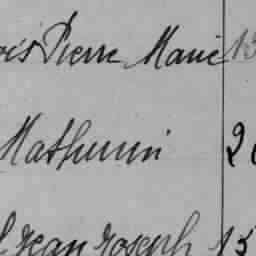 Pierre Marie 15
Mathurin 2
Jean Joseph 15